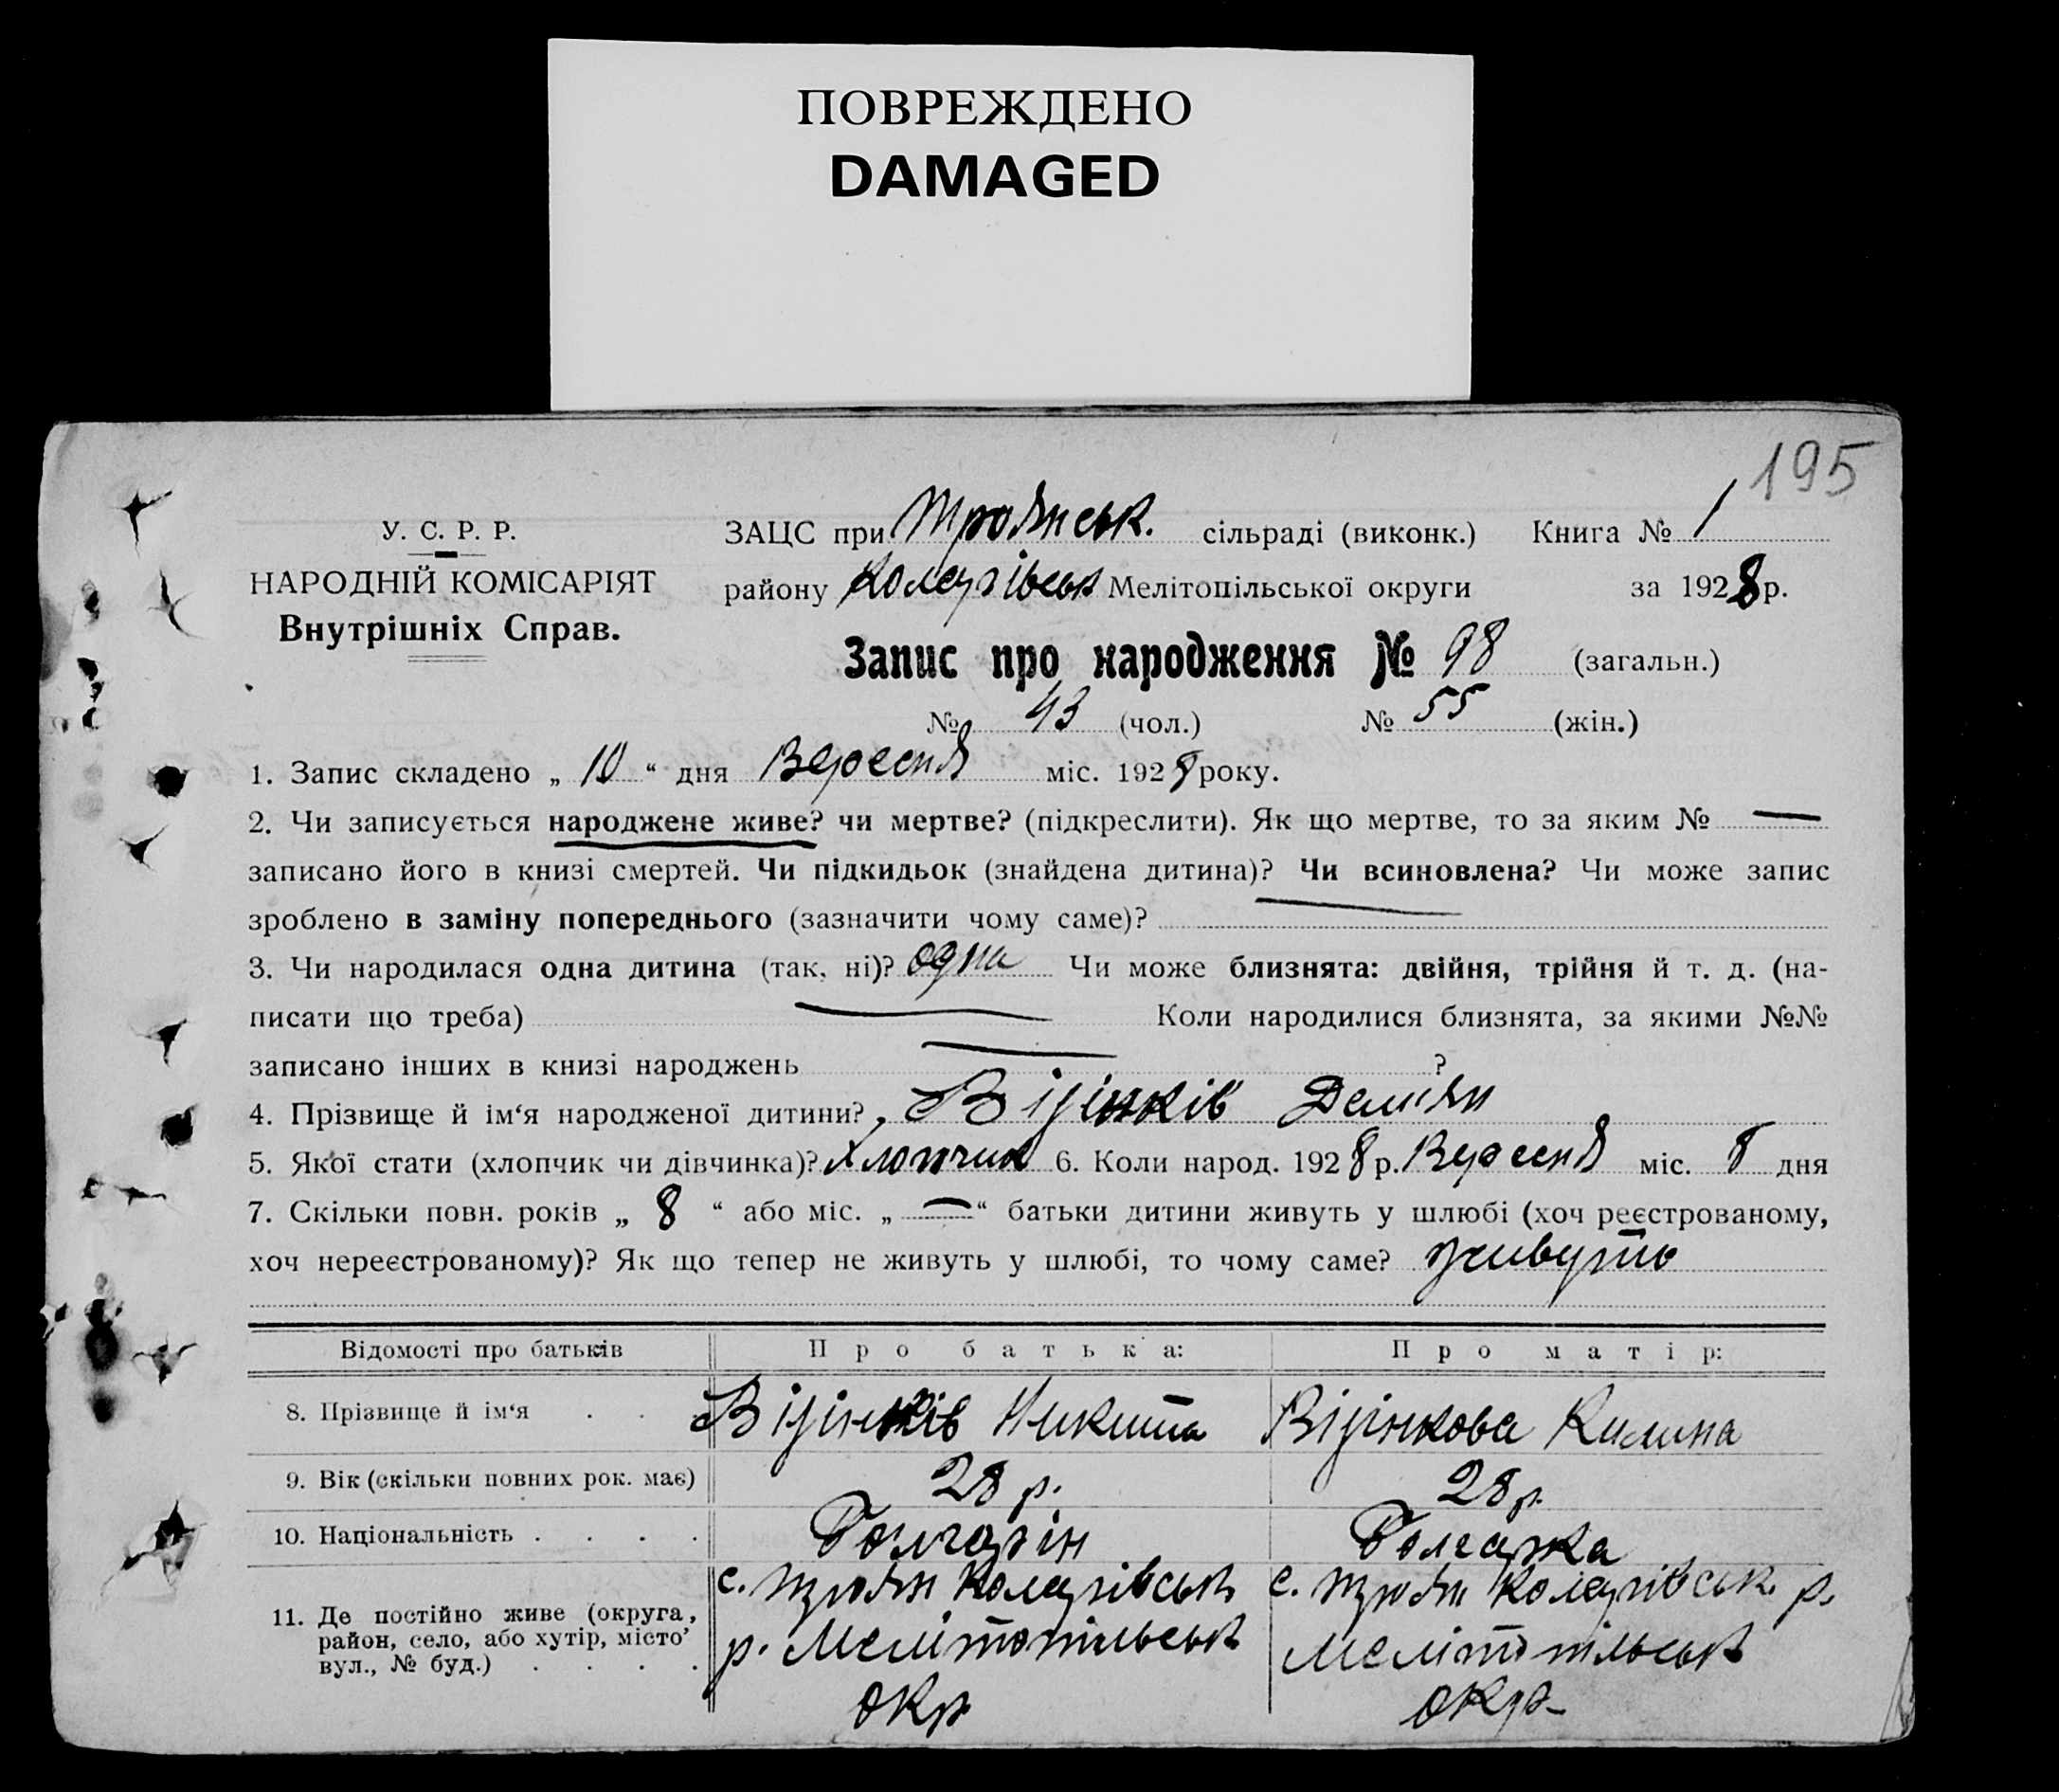 ПОВРЕЖДЕНО
DAMAGED
195
У. С. Р. Р.
НАРОДНІЙ КОМІСАРІЯТ
Внутрішніх Справ.
ЗАЦС при Троянськ. сільраді (виконк.) Книга № 1
району Коларівськ Мелітопільської округи за 1928 р.
Запис про народження № 98 (загальн.)
№ 43 (чол.) № 55 (жін.)
1. Запис складено „ 10 “ дня Вересня міс. 1928 року.
2. Чи записується народжене живе? чи мертве? (підкреслити). Як що мертве, то за яким № —
записано його в книзі смертей. Чи підкидьок (знайдена дитина)? Чи всиновлена? Чи може запис
зроблено в заміну попереднього (зазначити чому саме)?
3. Чи народилася одна дитина (так, ні)? одна Чи може близнята: двійня, трійня й т. д. (на-
писати що треба) — Коли народилися близнята, за якими №№
записано інших в книзі народжень — ?
4. Прізвище й ім‘я народженої дитини? Демʼян
5. Якої стати (хлопчик чи дівчинка)? Хлопчик 6. Коли народ. 1928 р. Вересня міс. 8 дня
7. Скільки повн. років „ 8 “ або міс. „ — “ батьки дитини живуть у шлюбі (хоч реєстрованому,
хоч нереєстрованому)? Як що тепер не живуть у шлюбі, то чому саме? живуть
Відомості про батьків Про батька: Про матір:
8. Прізвище й ім‘я . . Никита Килина
9. Вік (скільки повних рок. має) 28 р. 28 р.
10. Національність . . . . Болгарін Болгарка
11. Де постійно живе (округа, район, село, або хутір, місто’ вул., № буд.) . . . .
с. Троян Коларівськ
р. Мелітопільськ
окр
с. Троян Коларівськ. р.
Мелітопільськ
окр-